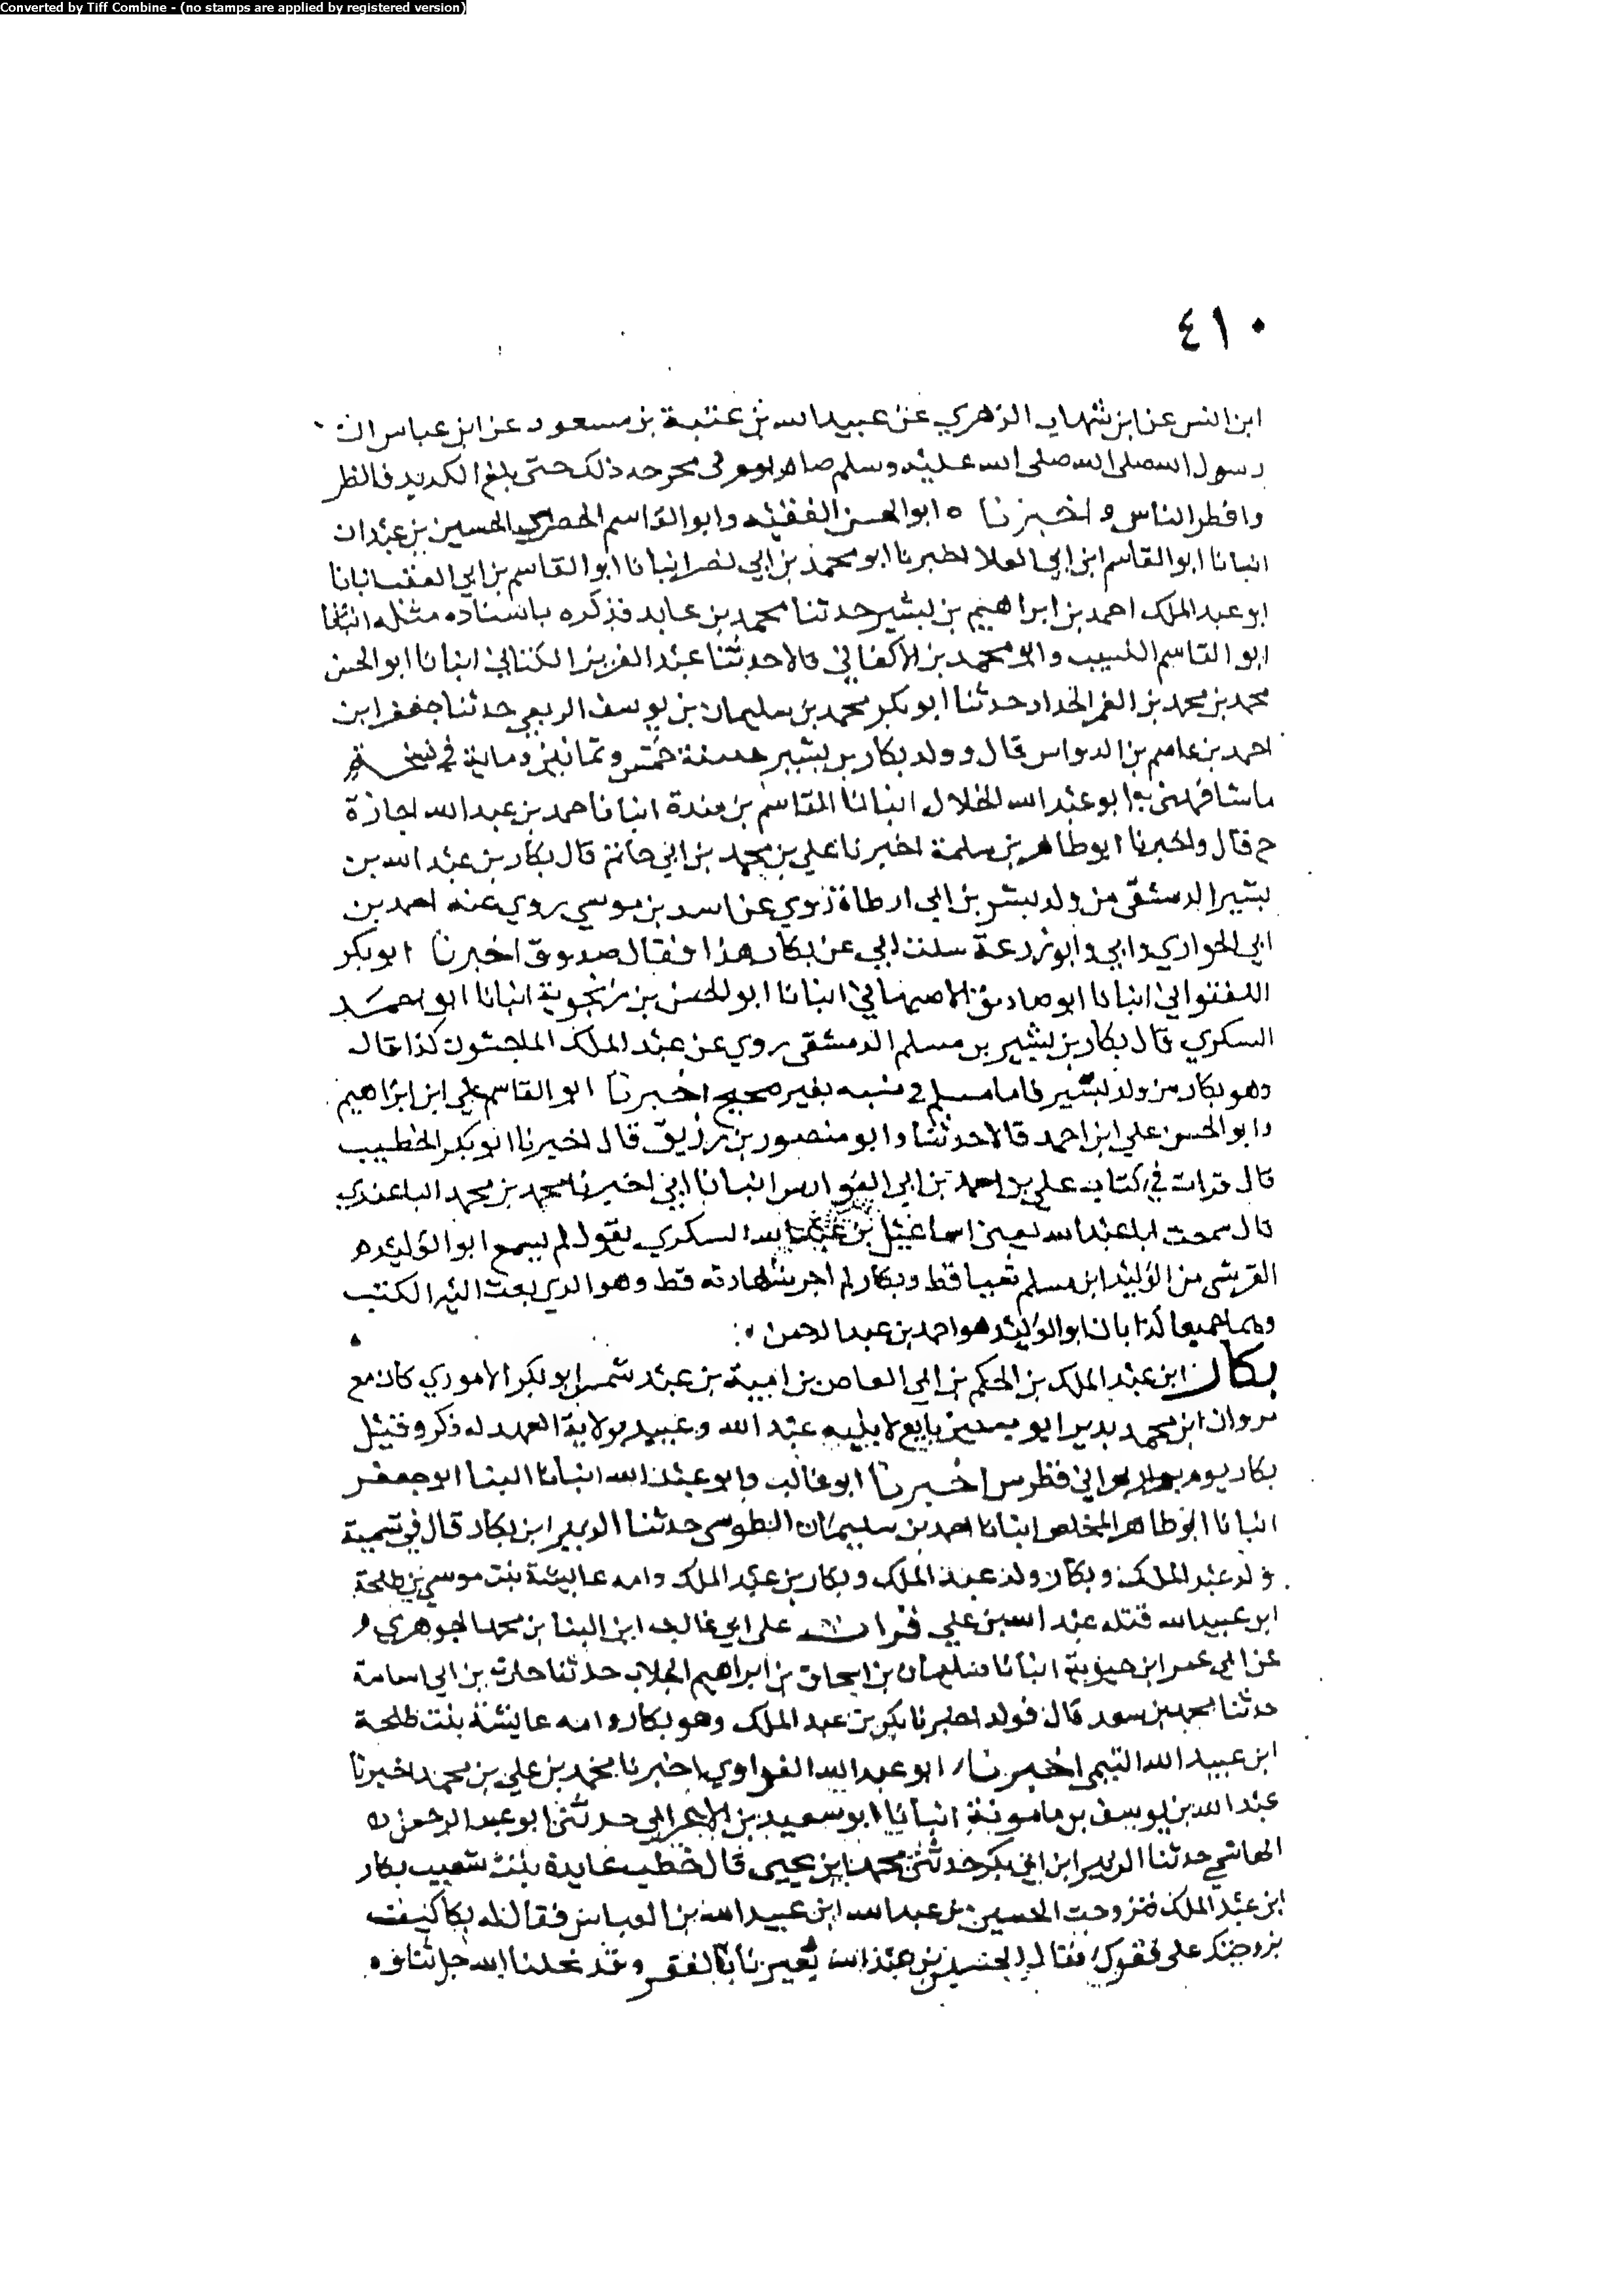 Converted by Tiff Combine - (no stamps are applied by registered version)
٤١٠
ابن انس عن ابن شهاب الزهري عن عبيدالله بن عتبة بن مسعود عن ابن عباس ان
رسول الله صلى الله صلى الله عليه وسلم صام ذلك حتى بلغ الكديد فافطر
وافطر الناس واخبرنا ابو الحسن الفقيه وابو القاسم الحسين بن عبدان
انبانا ابو القاسم ابن ابي العلا اخبرنا ابو محمد بن ابي نصر انبانا ابو القاسم بن ابي العقب انبانا
ابو عبد الملك احمد بن ابراهيم بن بشير حدثنا محمد بن عايد فذكره باسناده مثله انبانا
ابو القاسم النسيب وابو محمد بن الاكفاني قالا حدثنا عبد العزيز الكتاني انبانا ابو الحسن
محمد بن محمد بن الغمر الحداد حدثنا ابو بكر محمد بن سليمان بن يوسف الربعي حدثنا جعفر ابن
احمد بن عاصم بن الدواس قال وولد بكار بن بشير سنة خمس وثمانين ومائة في نسخة
ما شافهني به ابو عبد الله الخلال انبانا القاسم بن مندة انبانا حمد بن عبد الله اجازة
ح قال واخبرنا ابو طاهر بن سلمة اخبرنا علي بن محمد بن ابي حاتم قال بكار بن عبد الله بن
بشير الدمشقي من ولد بشر بن ابي ارطاة روي عن اسد بن موسي روي عنه احمد بن
ابي الحواري وابي وابو زرعة سئل ابي عن بكار هذا فقال صدوق اخبرنا ابو بكر
اللفتواني انبانا ابو صادق الاصبهاني انبانا ابو الحسن بن زنجوية انبانا ابو احمد
السكري قال بكار بن بشير بن مسلم الدمشقي روي عن عبد الملك الماجشون كذا قال
وهو بكار من ولد بشير فاما مسلم في نسبه بغير صحيح اخبرنا ابو القاسم علي ابن ابراهيم
وابو الحسن علي ابن احمد قالا حدثنا وابو منصور بن زريق قال اخبرنا ابو بكر الخطيب
قال قرات في كتاب علي بن احمد بن ابي الفوارس انبانا ابي اخبرنا محمد بن محمد الباغندي
قال سمعت ابا عبد الله يعني اسماعيل بن عبد الله السكري يقول لم يسمع ابو الوليد
القرشي من الوليد ابن مسلم شيا قط وبكار لم اجز شهادته قط وهو الذي بعث اليه الكتب
وهما جميعا كذابان ابو الوليد هو احمد بن عبد الرحمن
بكار ابن عبد الملك بن الحكم بن ابي العاص بن امية بن عبد شمس ابو بكر الاموري كان مع
مروان ابن محمد بدير ايوب حين بايع لابنيه عبد الله وعبيد بولاية العهد له ذكر وقتل
بكار يوم ابي فطرس اخبرنا ابو غالب وابو عبد الله انبانا البنا ابو جعفر
انبانا ابو طاهر المخلص انبانا احمد بن سليمان الطوسي حدثنا الزبير ابن بكار قال في تسمية
ولد عبد الملك وبكار ولد عبد الملك وبكار بن عبد الملك وامه عايشة بنت موسي بن طلحة
ابن عبيد الله قتله عبد الله بن علي قرات على ابي غالب ابن البنا بن محمد الجوهري
عن ابي عمر ابن حيوية انبانا سليمان بن اسحاق بن ابراهيم الجلاب حدثنا حارث بن ابي اسامة
حدثنا محمد بن سعد قال فولد بكر بن عبد الملك وهو بكار وامه عايشة بنت طلحة
ابن عبيد الله التيمي اخبرنا ابو عبد الله الفراوي اخبرنا محمد بن علي بن محمد اخبرنا
عبد الله بن يوسف بن مامونة انبانا ابو سعيد بن الاعرابي حدثني ابو عبد الرحمن
الهاشمي حدثنا الزبير ابن ابي بكر حدثني محمد ابن يحيى قال خطب عابدة بنت شعيب بكار
ابن عبد الملك فتزوجت الحسين بن عبد الله ابن عبيد الله بن العباس فقال له بكار كيف
تزوجتك على فقرك فقال له الحسين بن عبد الله تعيرنا بالفقر وقد نحلنا الله جل ثناؤه